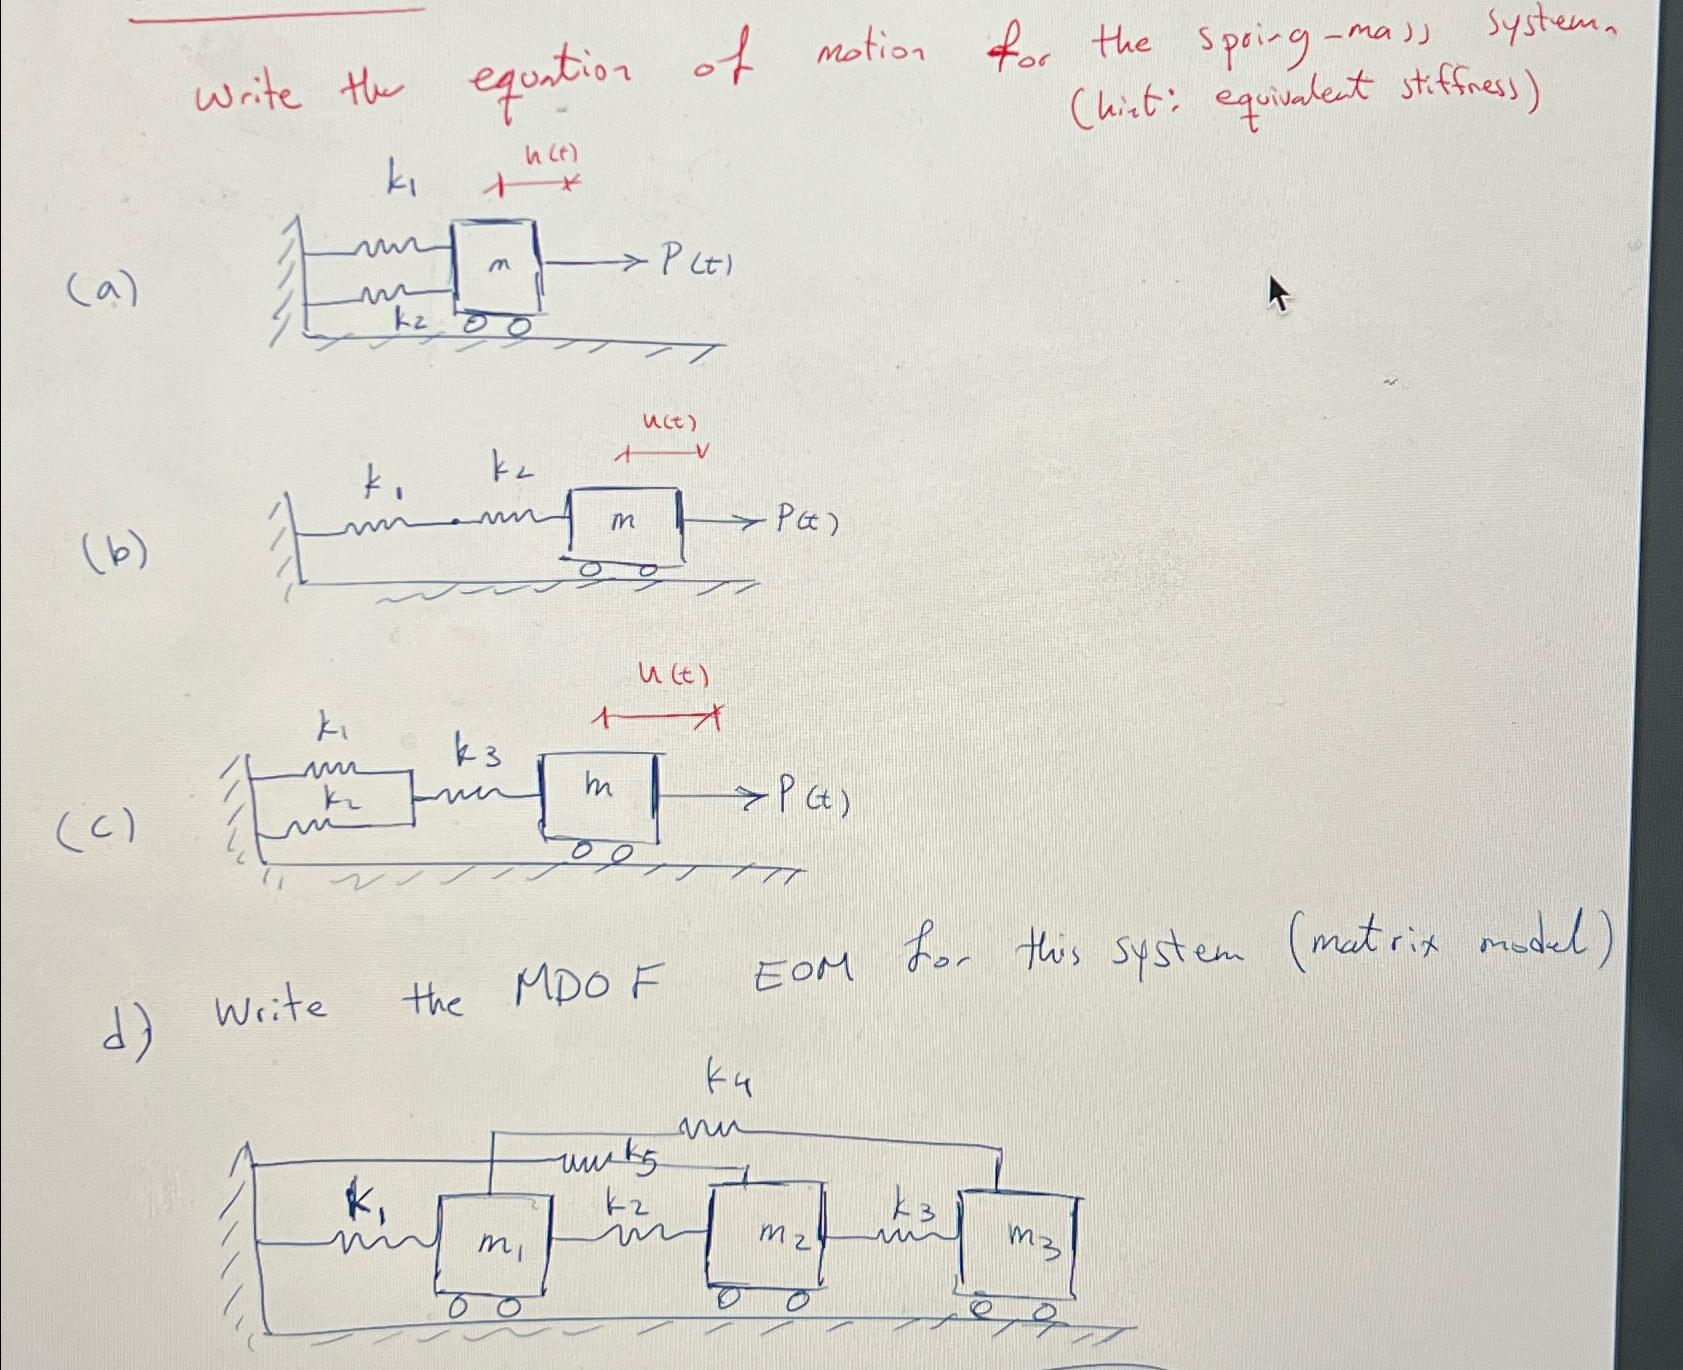 Write the equation of motion for the spring-mass system.
(hint: equivalent stiffness)
k1 u(t)
(a) m P(t)
k2
u(t)
k1 k2
(b) m P(t)
u(t)
k1 k3
(c) k2 m P(t)
d) Write the MDOF EOM for this system (matrix model)
k4
k5
k1 k2 k3
m1 m2 m3